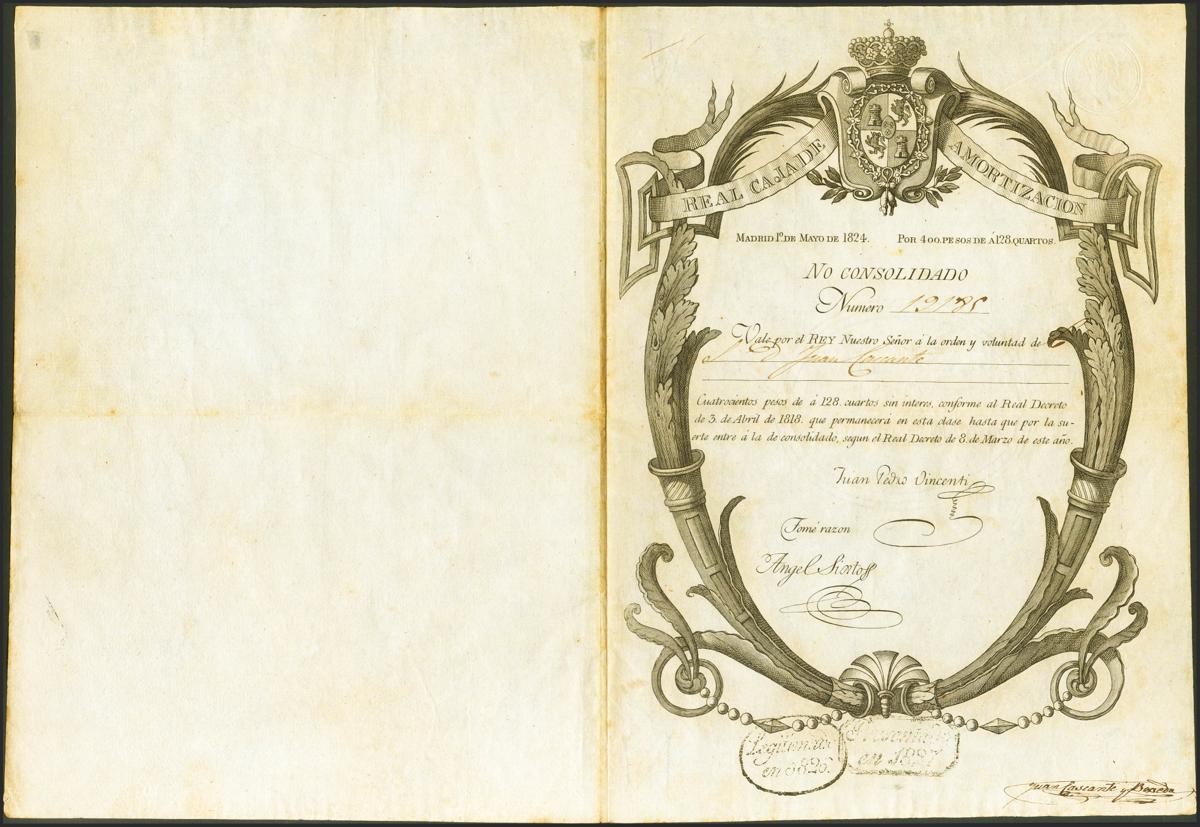 REAL CAJA DE AMORTIZACION
MADRID 1º DE MAYO DE 1824. POR 400. PESOS DE Á 128. QUARTOS.
NO CONSOLIDADO
Numero 19185
Vale por el REY Nuestro Señor á la orden y voluntad de
D Juan Cascante
Cuatrocientos pesos de á 128. cuartos sin interes, conforme al Real Decreto
de 3. de Abril de 1818. que permanecerá en esta clase hasta que por la su-
erte entre á la de consolidado, segun el Real Decreto de 8. de Marzo de este año.
Juan Pedro Vincenti
Tomé razon
Angel
en 1827
en 1826.
Juan Cascante y